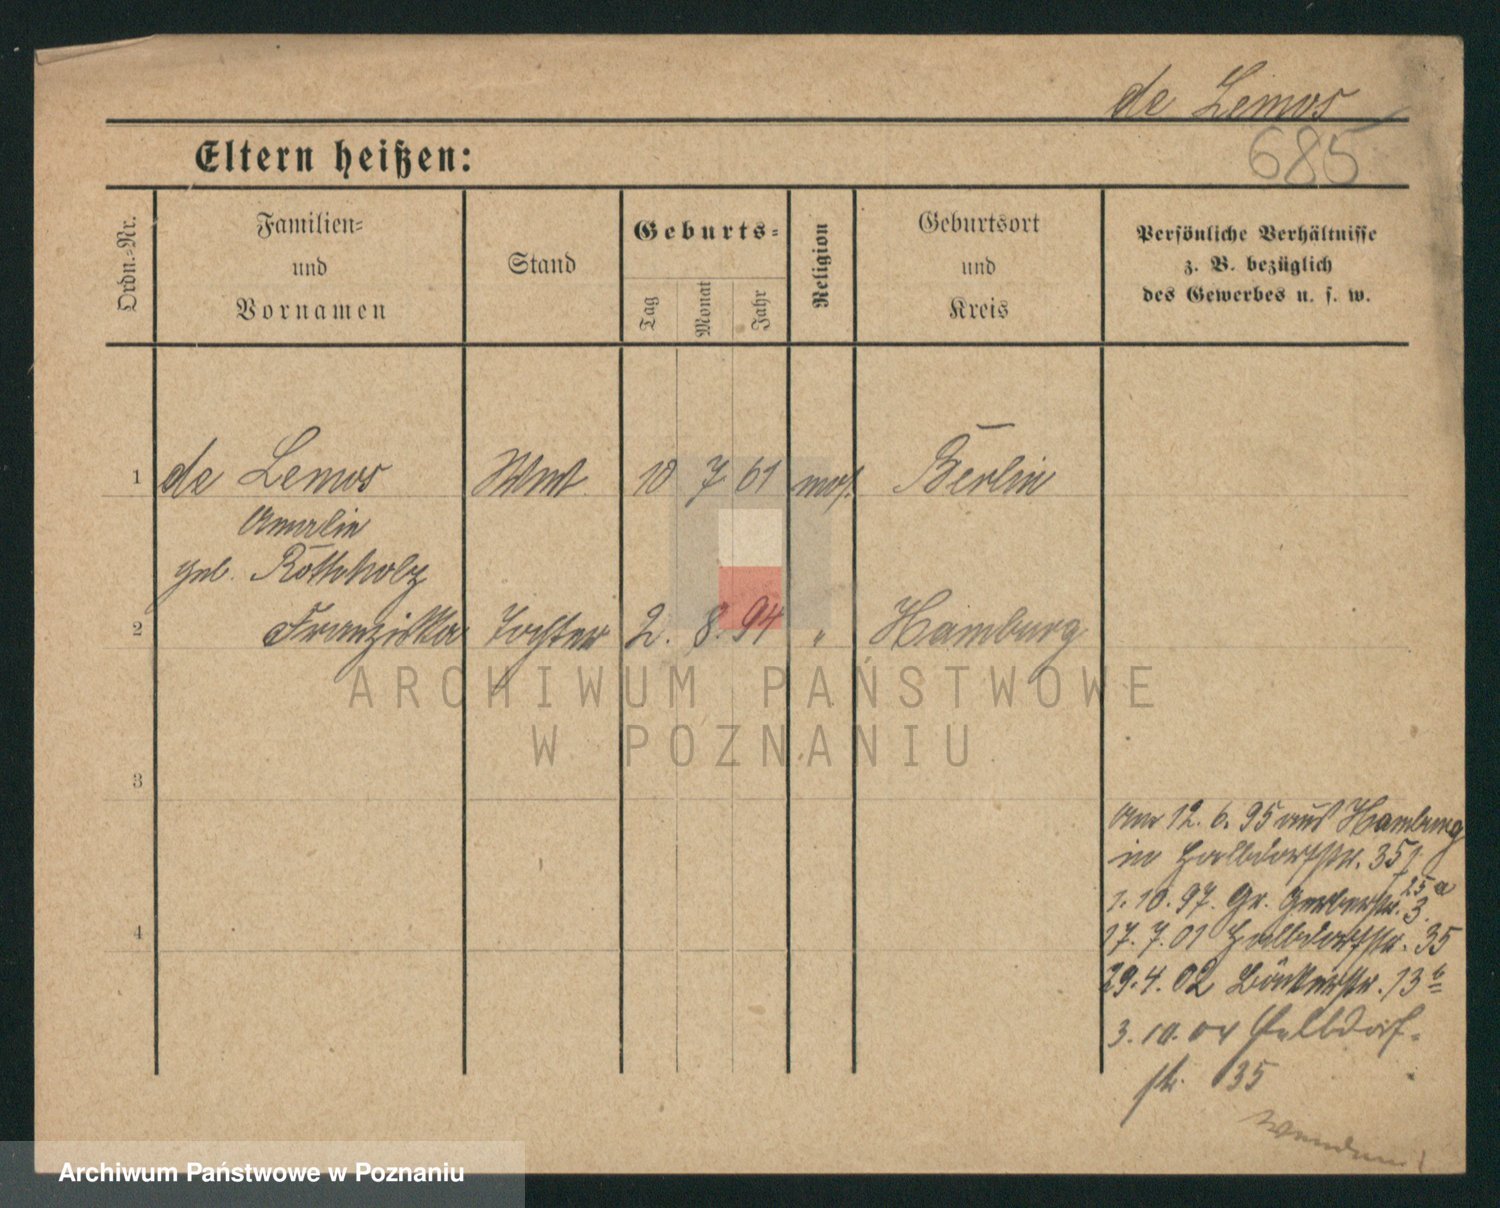 de Lemos
685
Eltern heißen:
Ordn.-Nr.
Familien-
und
Vornamen
Stand
Geburts-
Tag
Monat
Jahr
Religion
Geburtsort
und
Kreis
Persönliche Verhältnisse
z. B. bezüglich
des Gewerbes u. s. w.
1 de Lemos 10 7 61 mos. Berlin
Amalie
geb. Rottholz
2 Franziska Tochter 2. 8. 94 " Hamburg
ARCHIWUM PAŃSTWOWE
W POZNANIU
3
4
Am 12. 6. 95 aus Hamburg
in Halbdorfstr. 35
25a
1. 10. 97. Gr. Gerberstr. 3.
17. 7. 01 Halbdorfstr. 35
29. 4. 02 Bäckerstr. 13b
3. 10. 04 Halbdorf-
str. 35
Wenden!
Archiwum Państwowe w Poznaniu